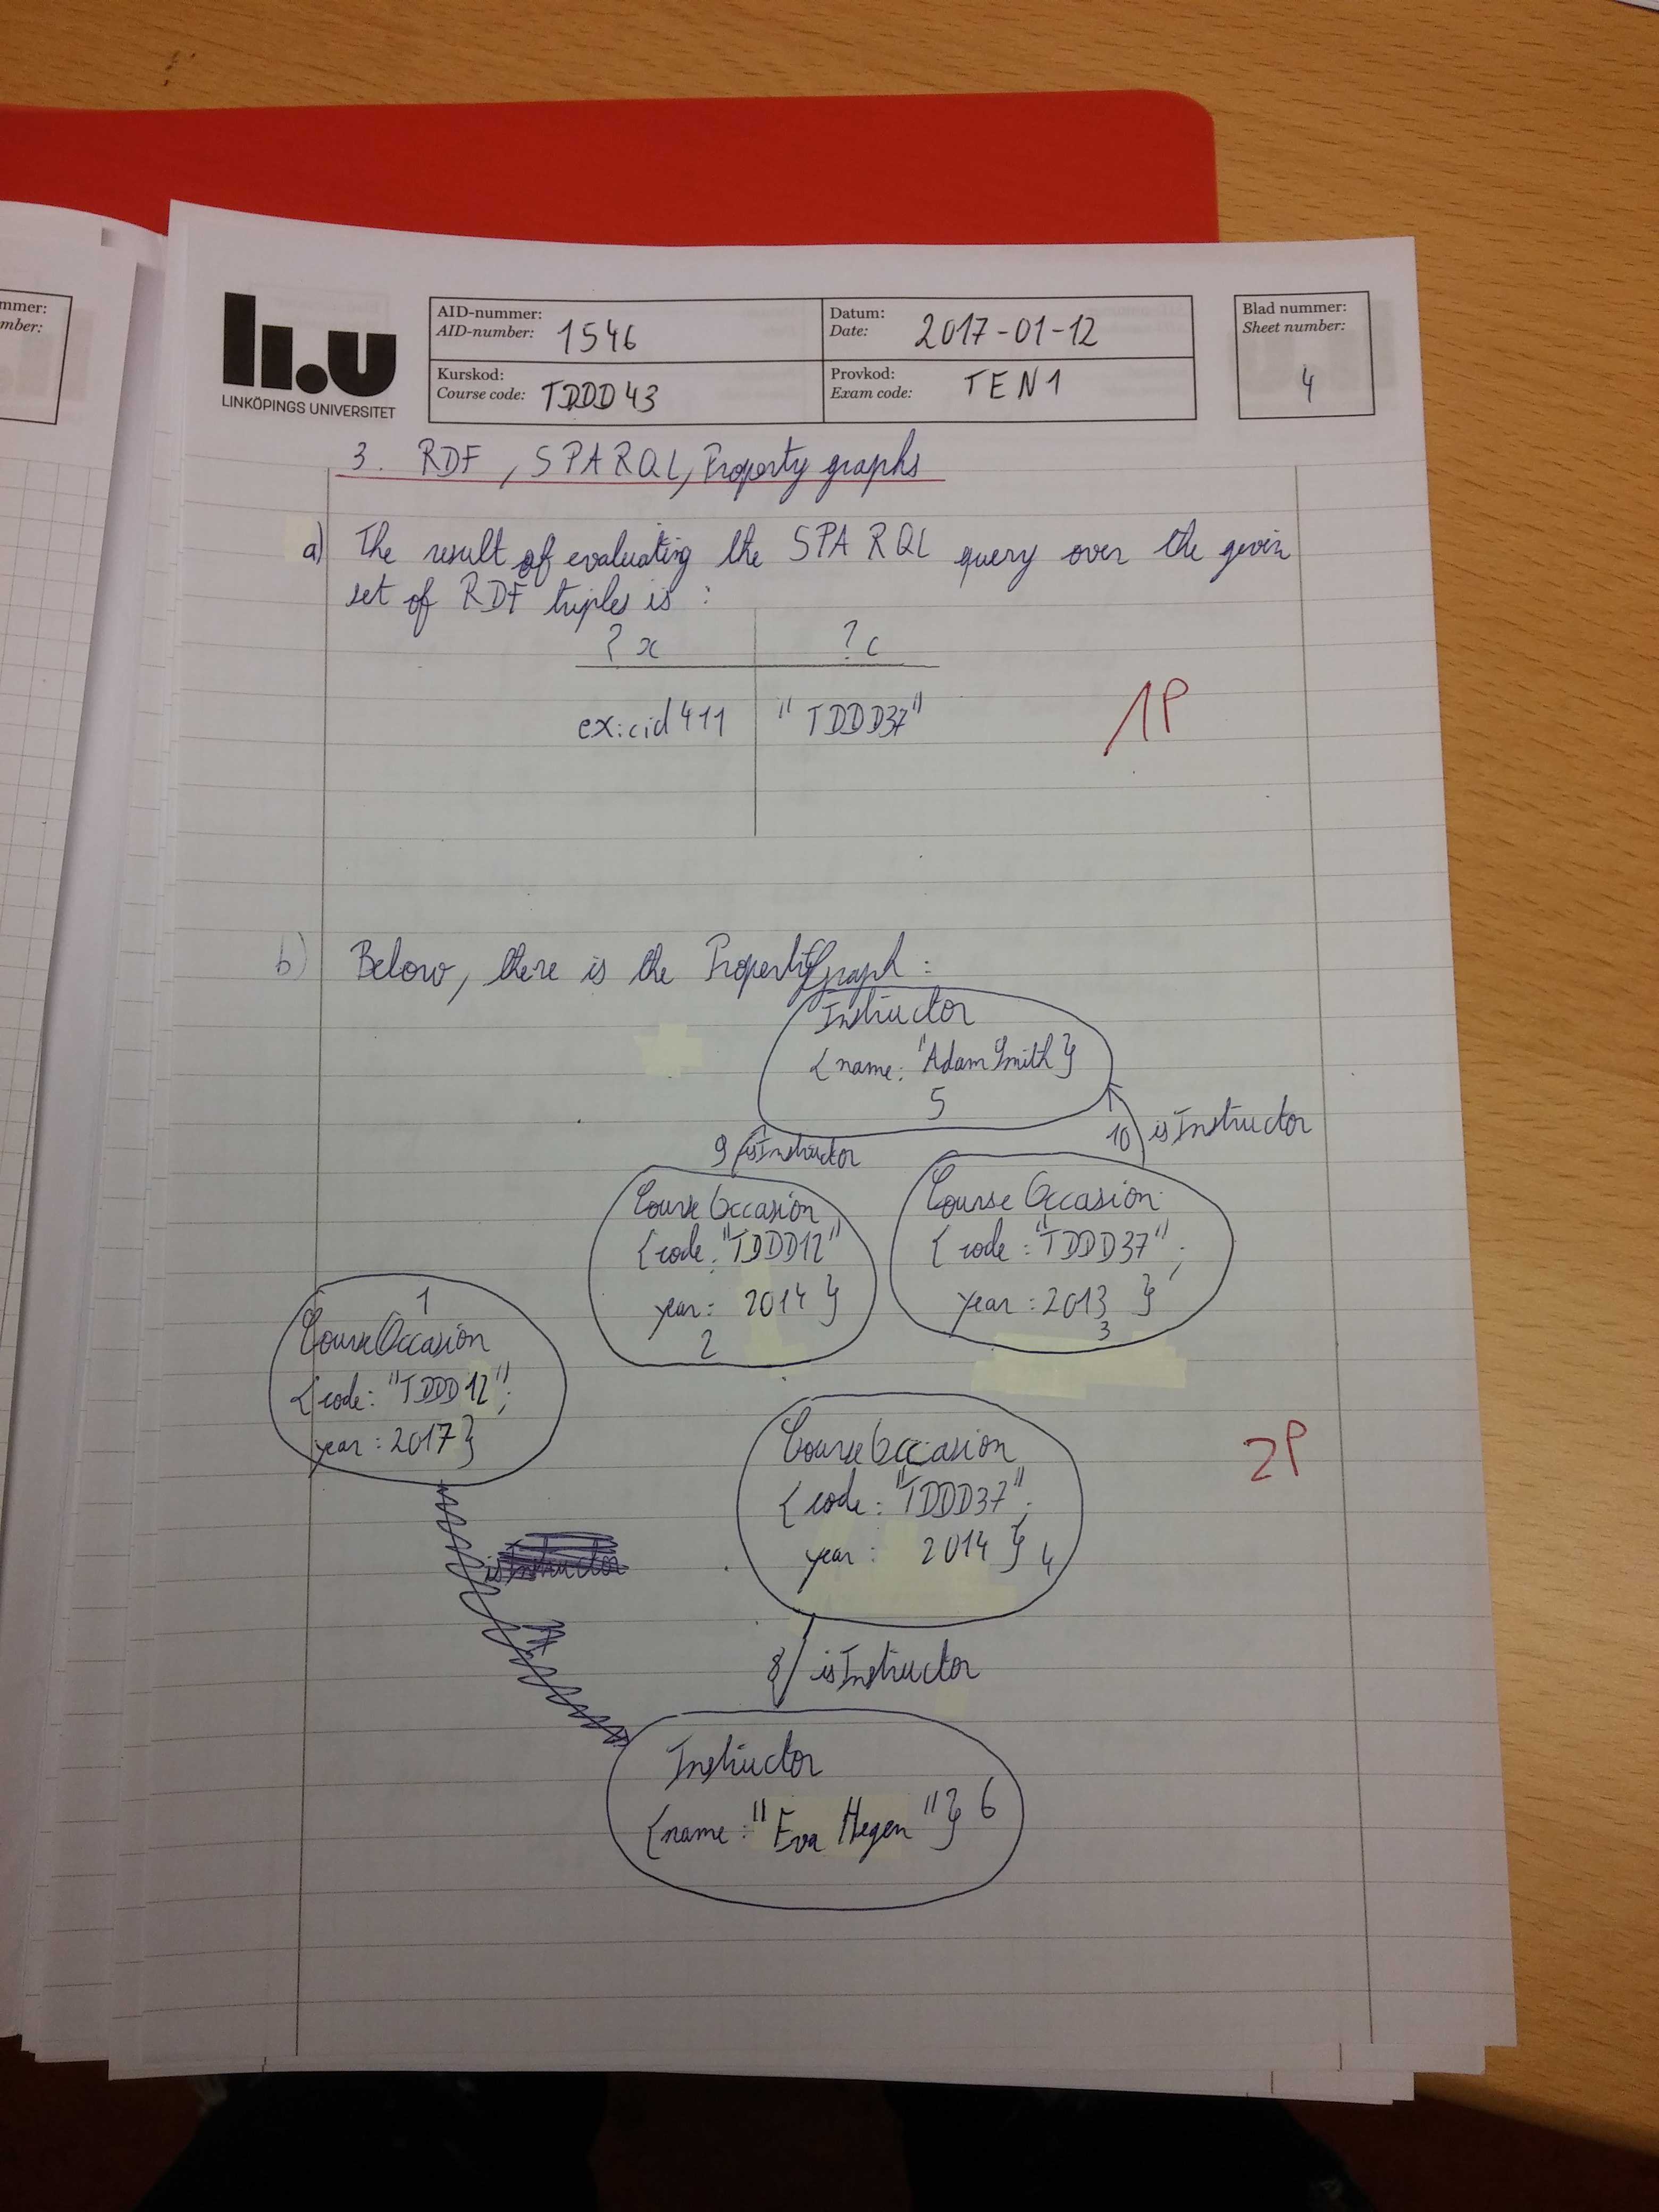 mmer:
mber:
li.u
LINKÖPINGS UNIVERSITET
AID-nummer:
AID-number: 1546
Datum:
Date: 2017-01-12
Kurskod:
Course code: TDDD43
Provkod:
Exam code: TEN1
Blad nummer:
Sheet number:
4
3. RDF, SPARQL, Property graphs
a) The result of evaluating the SPARQL query over the given
set of RDF triples is :
?x ?c
ex:cid411 "TDDD37"
1P
b) Below, there is the Property Graph :
Instructor
{name: "Adam Smith}
5
9 isInstructor
10 isInstructor
Course Occasion
{code: "TDDD12"
year: 2014 }
2
Course Occasion
{code : "TDDD37";
year : 2013 }
3
1
Course Occasion
{code: "TDDD12";
year : 2017}
Course Occasion
{code : "TDDD37";
year : 2014 } 4
2P
isInstructor
8 isInstructor
Instructor
{name : "Eva Hegen"} 6